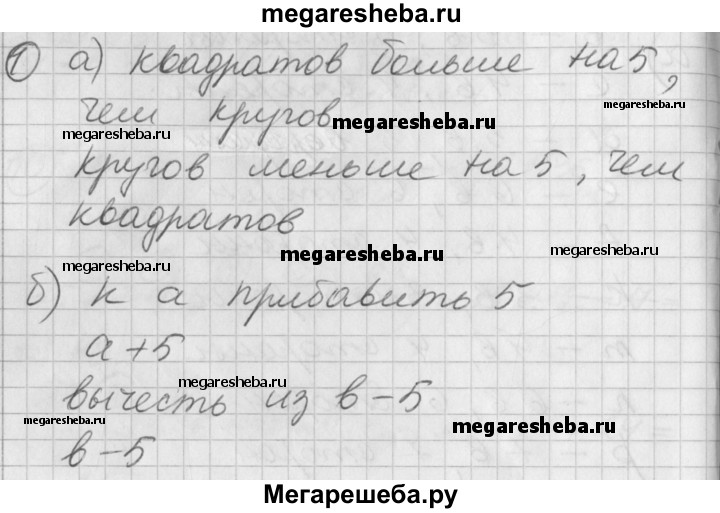 megaresheba.ru
1 а) квадратов больше на 5,
megaresheba.ru
чем кругов
megaresheba.ru
megaresheba.ru
кругов меньше на 5, чем
квадратов
megaresheba.ru
megaresheba.ru
megaresheba.ru
б) к а прибавить 5
а+5
megaresheba.ru
вычесть из в-5
megaresheba.ru
megaresheba.ru
в-5
Мегарешеба.ру